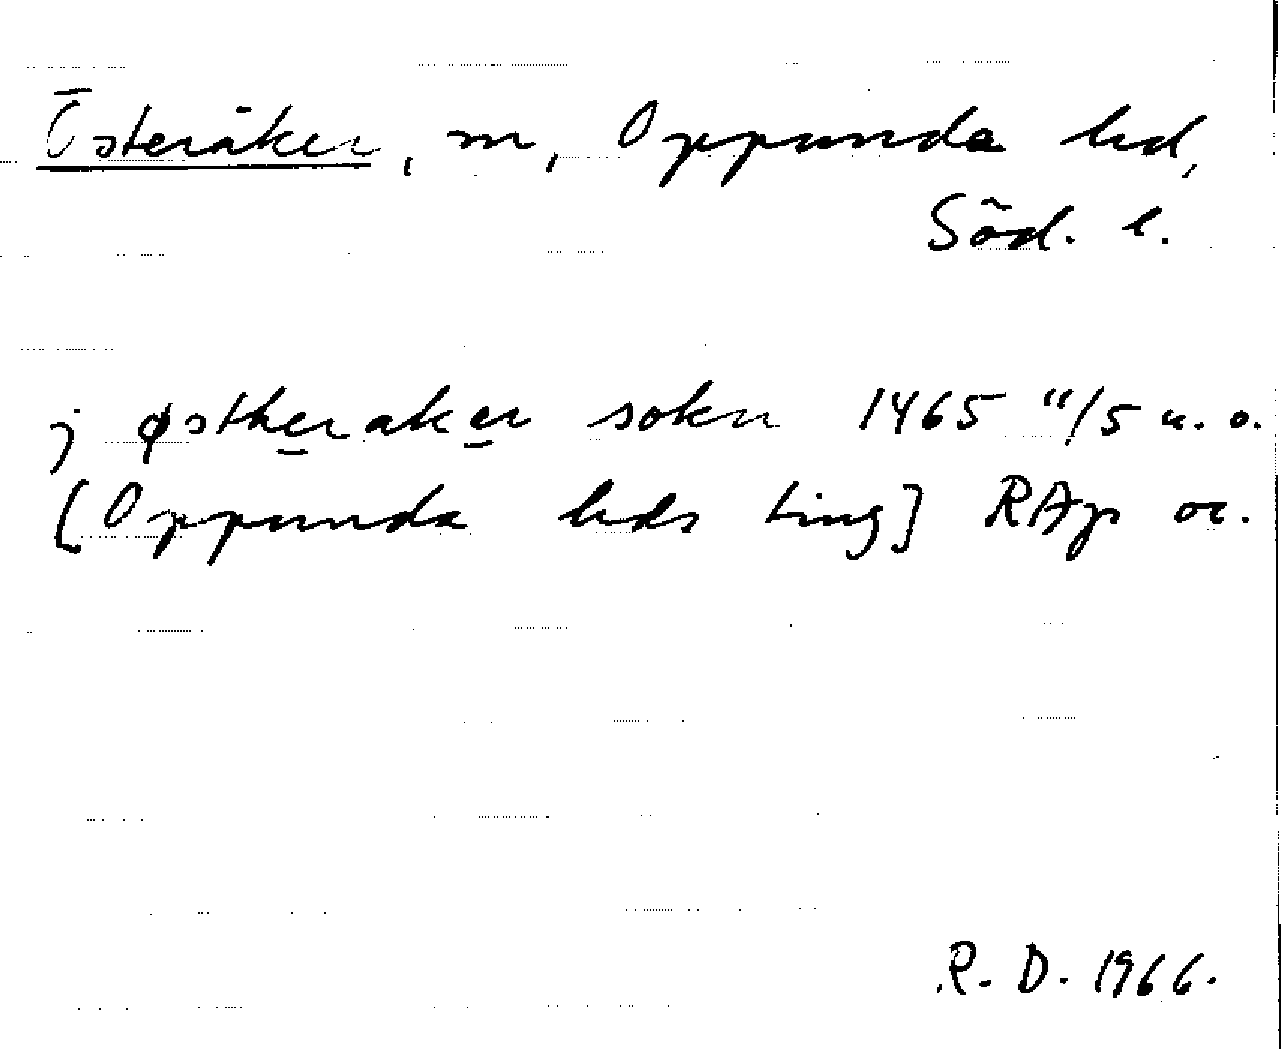 Österåker, sn, Oppunda hd,
Söd. l.
j østheraker sokn 1465 11/5 u. o.
[Oppunda hds ting] RAp or.
R. D. 1966.